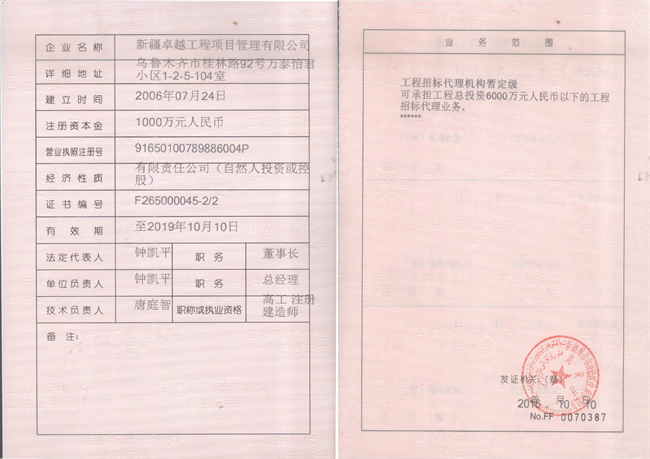 企业名称 新疆卓越工程项目管理有限公司
详细地址 乌鲁木齐市桂林路92号万泰怡君
小区1-2-5-104室
建立时间 2006年07月24日
注册资本金 1000万元人民币
营业执照注册号 91650100789886004P
经济性质 有限责任公司（自然人投资或控
股）
证书编号 F265000045-2/2
有效期 至2019年10月10日
法定代表人 钟凯平 职务 董事长
单位负责人 钟凯平 职务 总经理
技术负责人 唐庭智 职称或执业资格 高工 注册
建造师
备注：
业务范围
工程招标代理机构暂定级
可承担工程总投资6000万元人民币以下的工程
招标代理业务。
******
发证机关：（章）
2016 年 10 月 10 日
No.FF 0070387